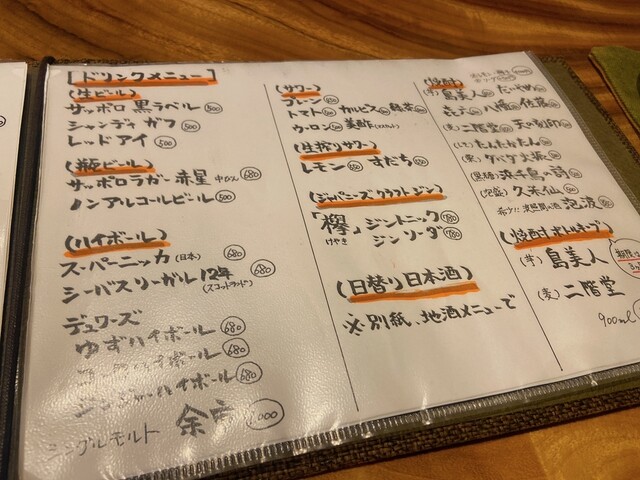 [ドリンクメニュー]
(生ビール)
サッポロ 黒ラベル 500
シャンディ ガフ 500
レッド アイ 500
(瓶ビール)
サッポロラガー 赤星 中びん 680
ノンアルコールビール 500
(ハイボール)
スーパーニッカ (日本) 680
シーバスリーガル 12年 (スコットランド) 680
デュワーズ
ゆずハイボール 680
ハイボール 680
ジンジャーハイボール 680
シングルモルト 余市
(サワー)
プレーン
トマト カルピス 緑茶
ウーロン 美酢
(生搾りサワー)
レモン すだち
(ジャパニーズクラフトジン)
「欅」ジントニック 780
けやき ジンソーダ 780
(日替り日本酒)
※別紙、地酒メューで
(焼酎)
(芋) 島美人 だいやめ
㐂六 八幡 佐藤
(麦) 二階堂
たんたかたん
ダバダ火振
(黒糖) 浜千鳥の詩
(泡盛) 久米仙
泡波
(焼酎ボトルキープ)
(芋) 島美人
(麦) 二階堂
900ml